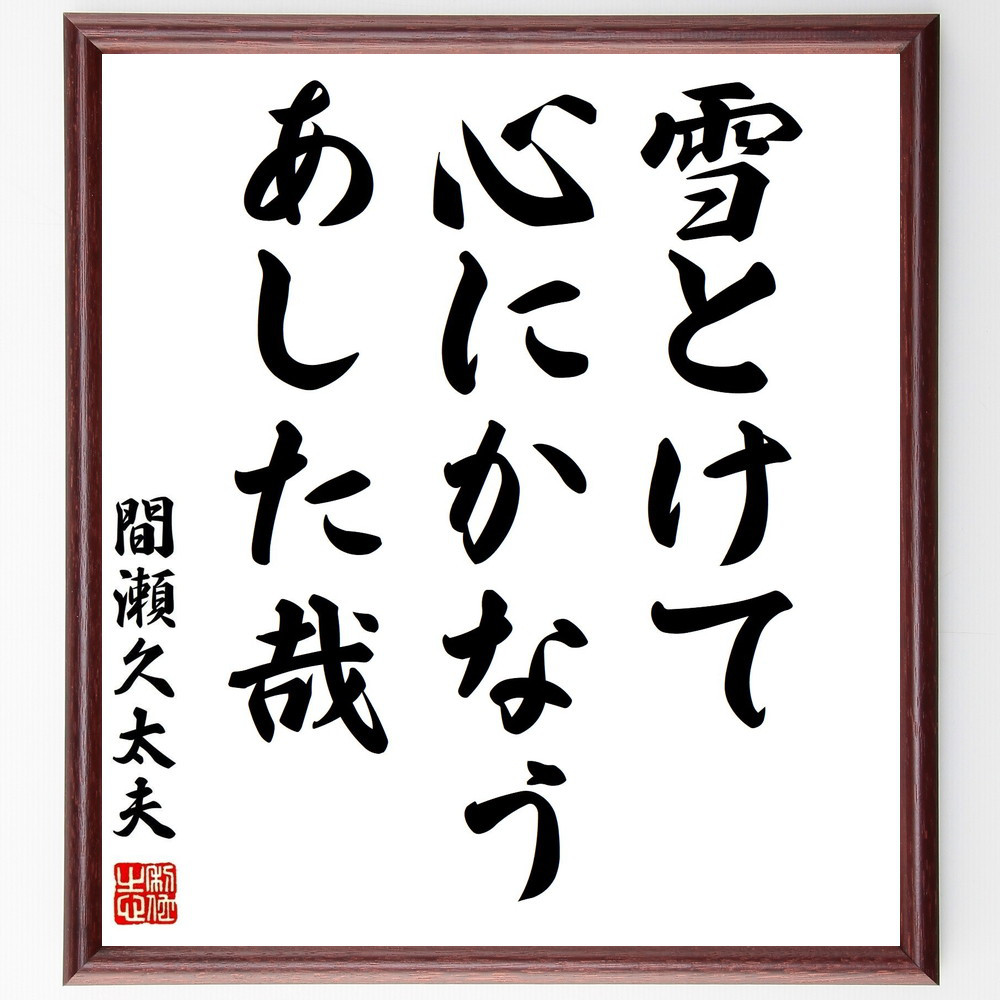 雪とけて
心にかなう
あした哉
間瀬久太夫